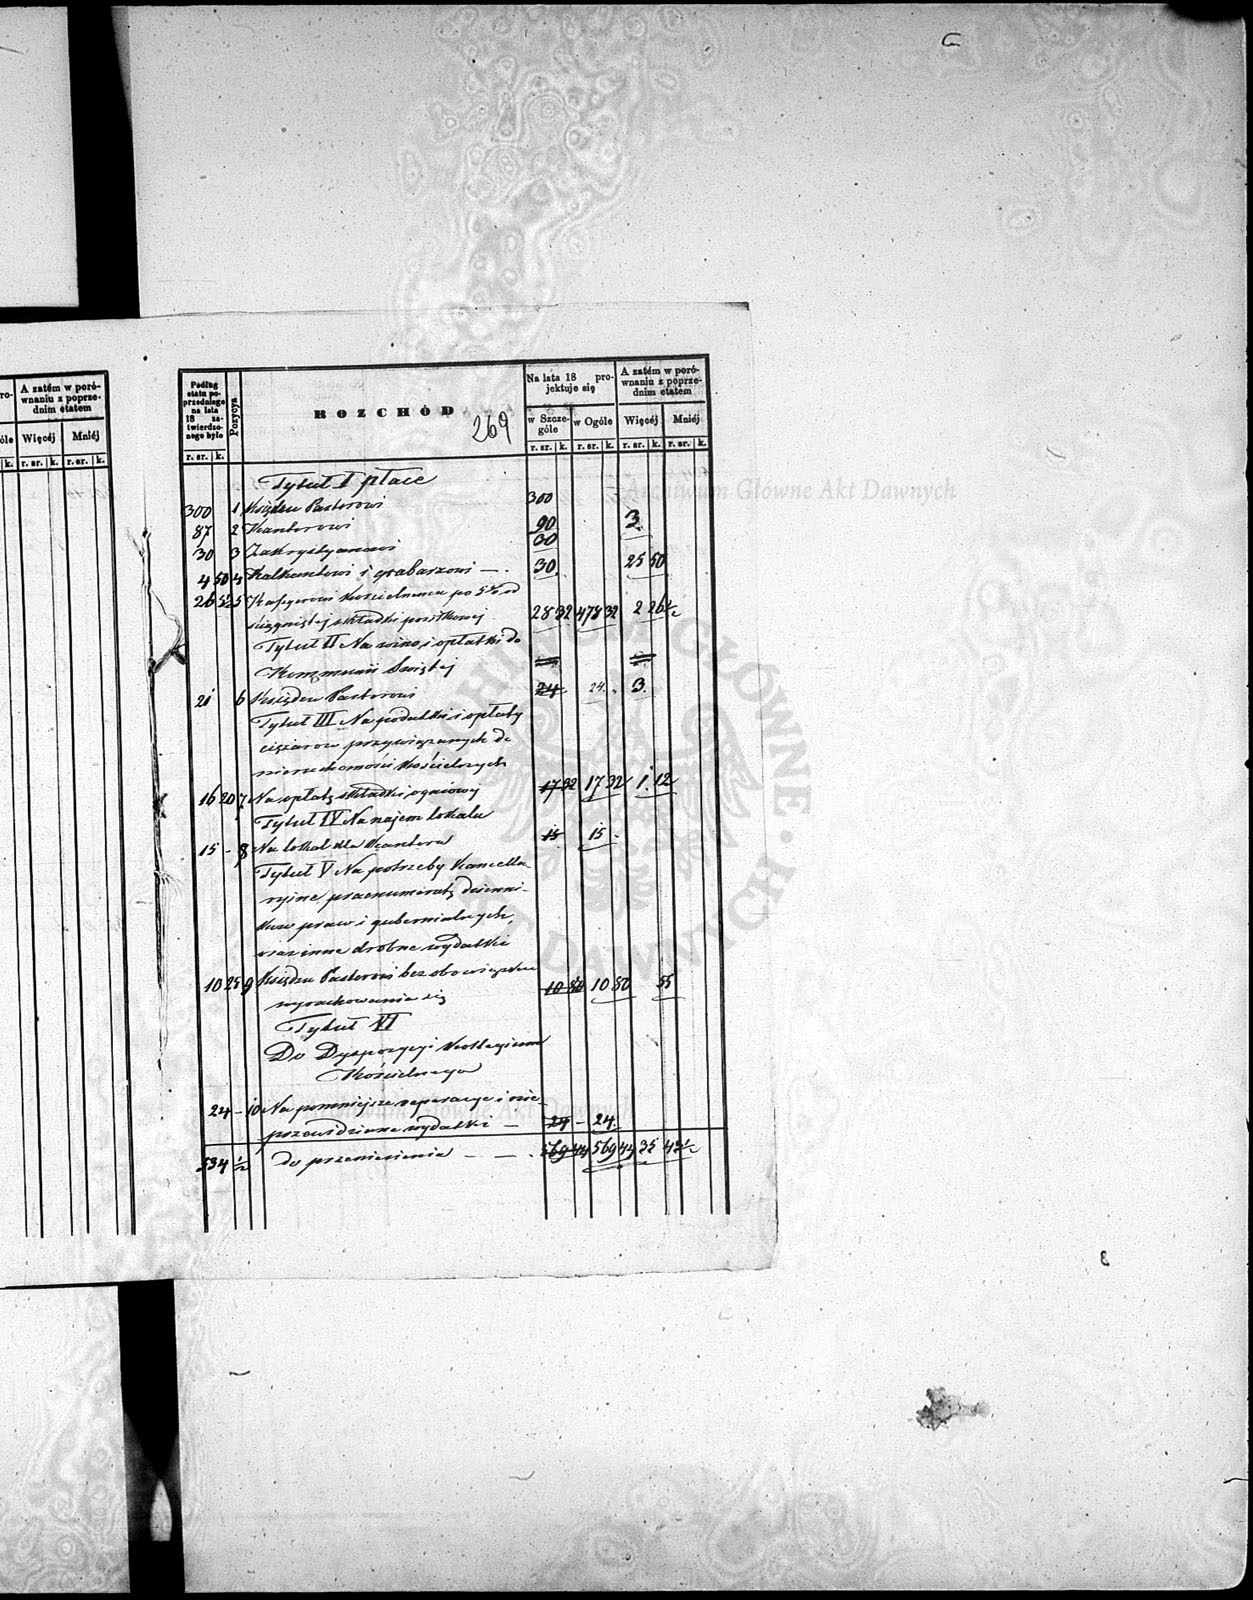 A zatém w poró-
wnaniu z poprze-
dnim etatem
Więcéj Mniéj
r. sr. k. r. sr. k.
Podług
etatu po-
przedniego
na lata
18 za-
twierdzo-
nego było
r. sr. k.
Pozycya
ROZCHÓD
269
Na lata 18 pro-
jektuje się
w Szcze-
góle
w Ogóle
r. sr. k. r. sr. k.
A zatém w poró-
wnaniu z poprze-
dnim etatem
Więcéj Mniéj
r. sr. k. r. sr. k.
Archiwum Główne Akt Dawnych
Tytuł I płace
300 1 Księdzu Pastorowi 300
87 2 Kantorowi 90 3
30 3 Zakrystyanowi 30
4 50 4 Kalkantowi i grabarzowi — . 30 25 50
26 5 Kasyerowi Kościelnemu po 5% od
ściągniętej składki posiłkowej 28 32 478 32 2 26½
Tytuł II Na wino i opłatki do
Kommunii Świętej
21 6 Księdzu Pastorowi 24 24 3
Tytuł III Na podatki i opłaty
ciężarów przywiązanych do
nieruchomości Kościelnych
16 20 7 Na opłatę składki ogniowej 17 32 17 32 1 12
Tytuł IV Na najem lokalu
15 - 8 Na lokal dla Kantora 15 15 -
Tytuł V Na potrzeby Kancella-
ryjne prenumeratę dzienni-
ków praw i gubernialnych,
oraz inne drobne wydatki
10 25 9 Księdzu Pastorowi bez obowiązku
wyrachowania się 10 80 10 80 55
Tytuł VI
Do Dyspozycyi Kollegium
Kościelnego
24 - 10 Na pomniejsze reperacye i nie-
przewidziane wydatki — 24 - 24.
534 ½ do przeniesienia — — . 569 44 569 44 35 43½